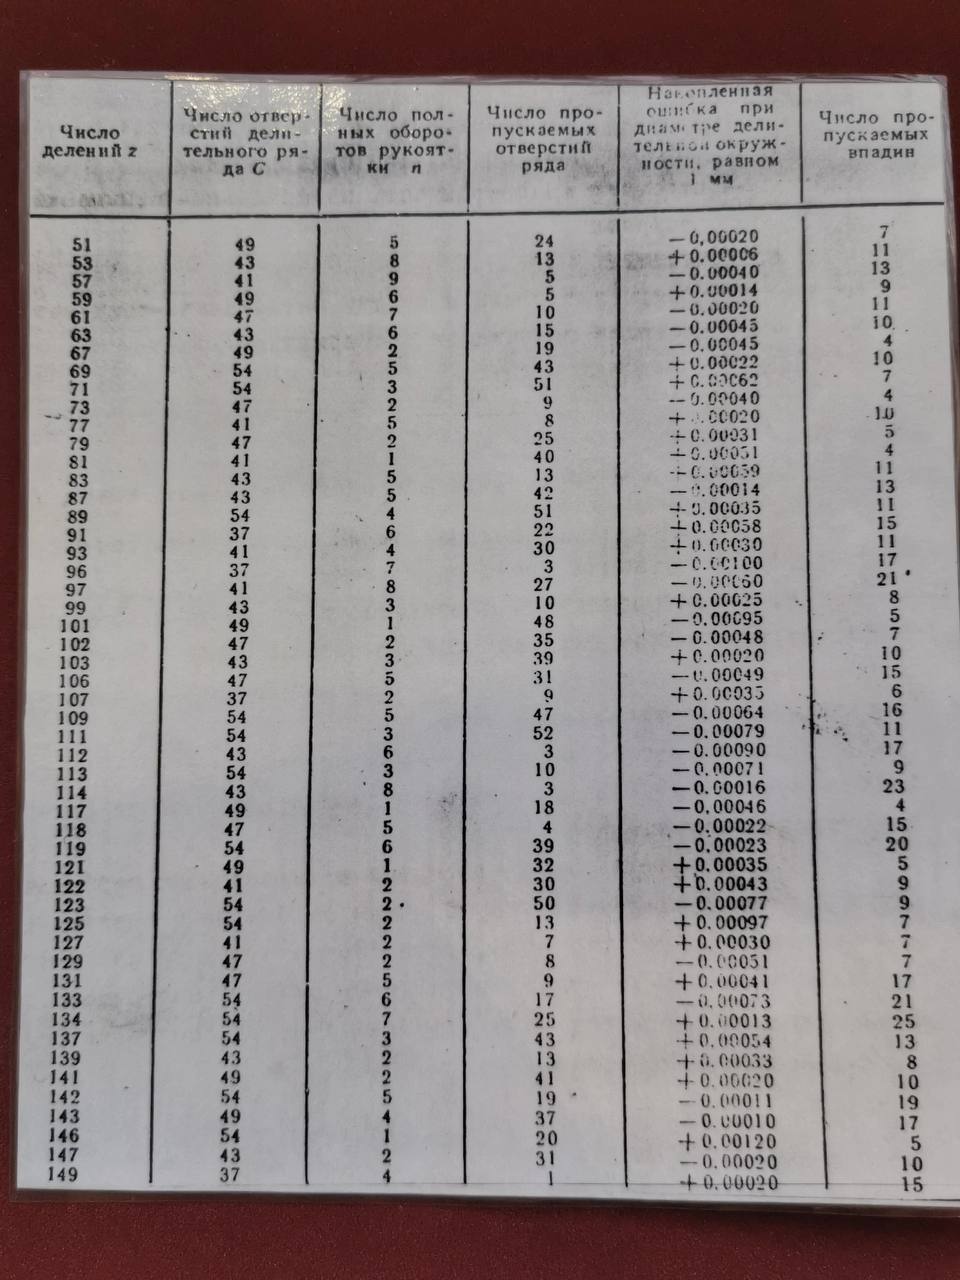 Число
делений z
Число отвер-
стий дели-
тельного ря-
да С
Число пол-
ных оборо-
тов рукоят-
ки n
Число про-
пускаемых
отверстий
ряда
Накопленная
ошибка при
диаметре дели-
тельной окруж-
ности, равном
1 мм
Число про-
пускаемых
впадин
51 49 5 24 −0,00020 7
53 43 8 13 +0.00006 11
57 41 9 5 −0.00040 13
59 49 6 5 +0.00014 9
61 47 7 10 −0.00020 11
63 43 6 15 −0.00045 10
67 49 2 19 −0.00045 4
69 54 5 43 +0.00022 10
71 54 3 51 +0.00062 7
73 47 2 9 −0.00040 4
77 41 5 8 +0.00020 10
79 47 2 25 +0.00031 5
81 41 1 40 +0.00051 4
83 43 5 13 +0.00059 11
87 43 5 42 −0.00014 13
89 54 4 51 +0.00035 11
91 37 6 22 +0.00058 15
93 41 4 30 +0.00030 11
96 37 7 3 −0.00100 17
97 41 8 27 −0.00060 21
99 43 3 10 +0.00025 8
101 49 1 48 −0.00095 5
102 47 2 35 −0.00048 7
103 43 3 39 +0.00020 10
106 47 5 31 −0.00049 15
107 37 2 9 +0.00035 6
109 54 5 47 −0.00064 16
111 54 3 52 −0.00079 11
112 43 6 3 −0.00090 17
113 54 3 10 −0.00071 9
114 43 8 3 −0.00016 23
117 49 1 18 −0,00046 4
118 47 5 4 −0,00022 15
119 54 6 39 −0,00023 20
121 49 1 32 +0.00035 5
122 41 2 30 +0.00043 9
123 54 2 50 −0.00077 9
125 54 2 13 +0.00097 7
127 41 2 7 +0.00030 7
129 47 2 8 −0.00051 7
131 47 5 9 +0.00041 17
133 54 6 17 −0.00073 21
134 54 7 25 +0.00013 25
137 54 3 43 +0.00054 13
139 43 2 13 +0.00033 8
141 49 2 41 +0.00020 10
142 54 5 19 −0.00011 19
143 49 4 37 −0.00010 17
146 54 1 20 +0.00120 5
147 43 2 31 −0.00020 10
149 37 4 1 +0.00020 15